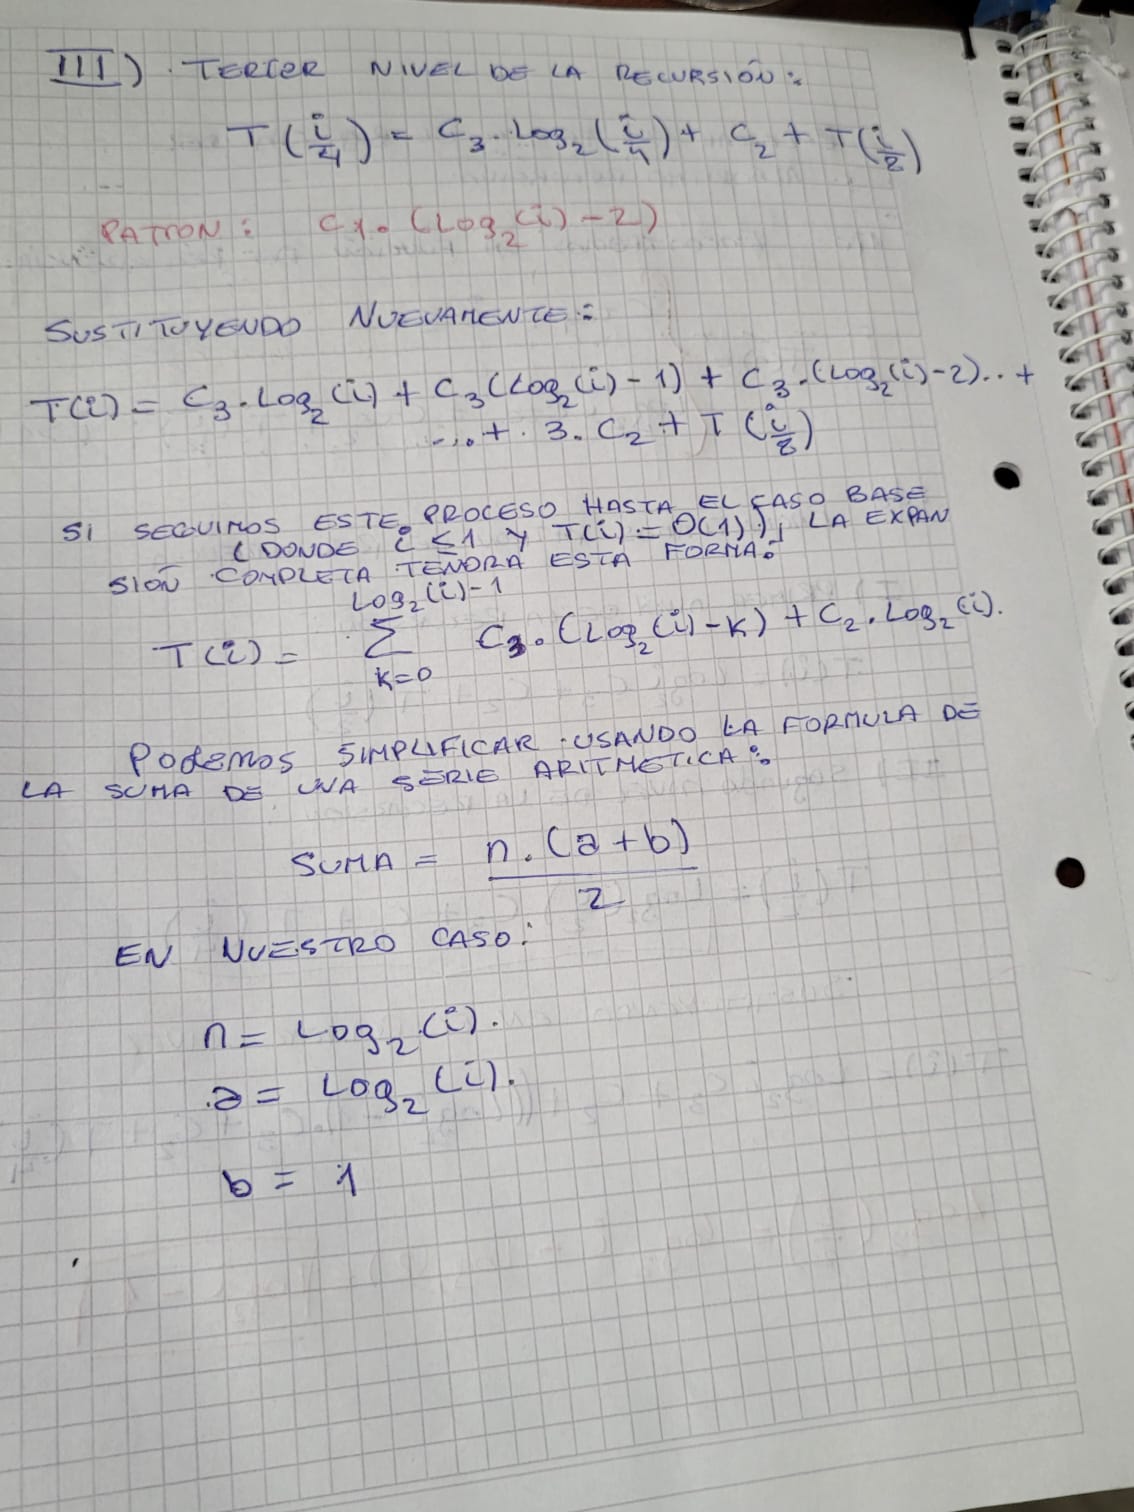 III) TERCER NIVEL DE LA RECURSIÓN:
T(i/4) = C₃.Log₂(i/4) + C₂ + T(i/8)
PATRON: C₁.(Log₂(i)-2)
SUSTITUYENDO NUEVAMENTE:
T(i) = C₃.Log₂(i) + C₃(Log₂(i)-1) + C₃.(Log₂(i)-2)..+
...+ 3.C₂ + T(i/8)
SI SEGUIMOS ESTE PROCESO HASTA EL CASO BASE
(DONDE i ≤ 1 Y T(i) = O(1)), LA EXPAN
SIÓN COMPLETA TENDRA ESTA FORMA:
Log₂(i)-1
T(i) = Σ C₃.(Log₂(i)-K) + C₂.Log₂(i).
K=0
Podemos SIMPLIFICAR USANDO LA FORMULA DE
LA SUMA DE UNA SERIE ARITMETICA:
SUMA = n.(a+b)
2
EN NUESTRO CASO:
n = Log₂(i).
a = Log₂(i).
b = 1